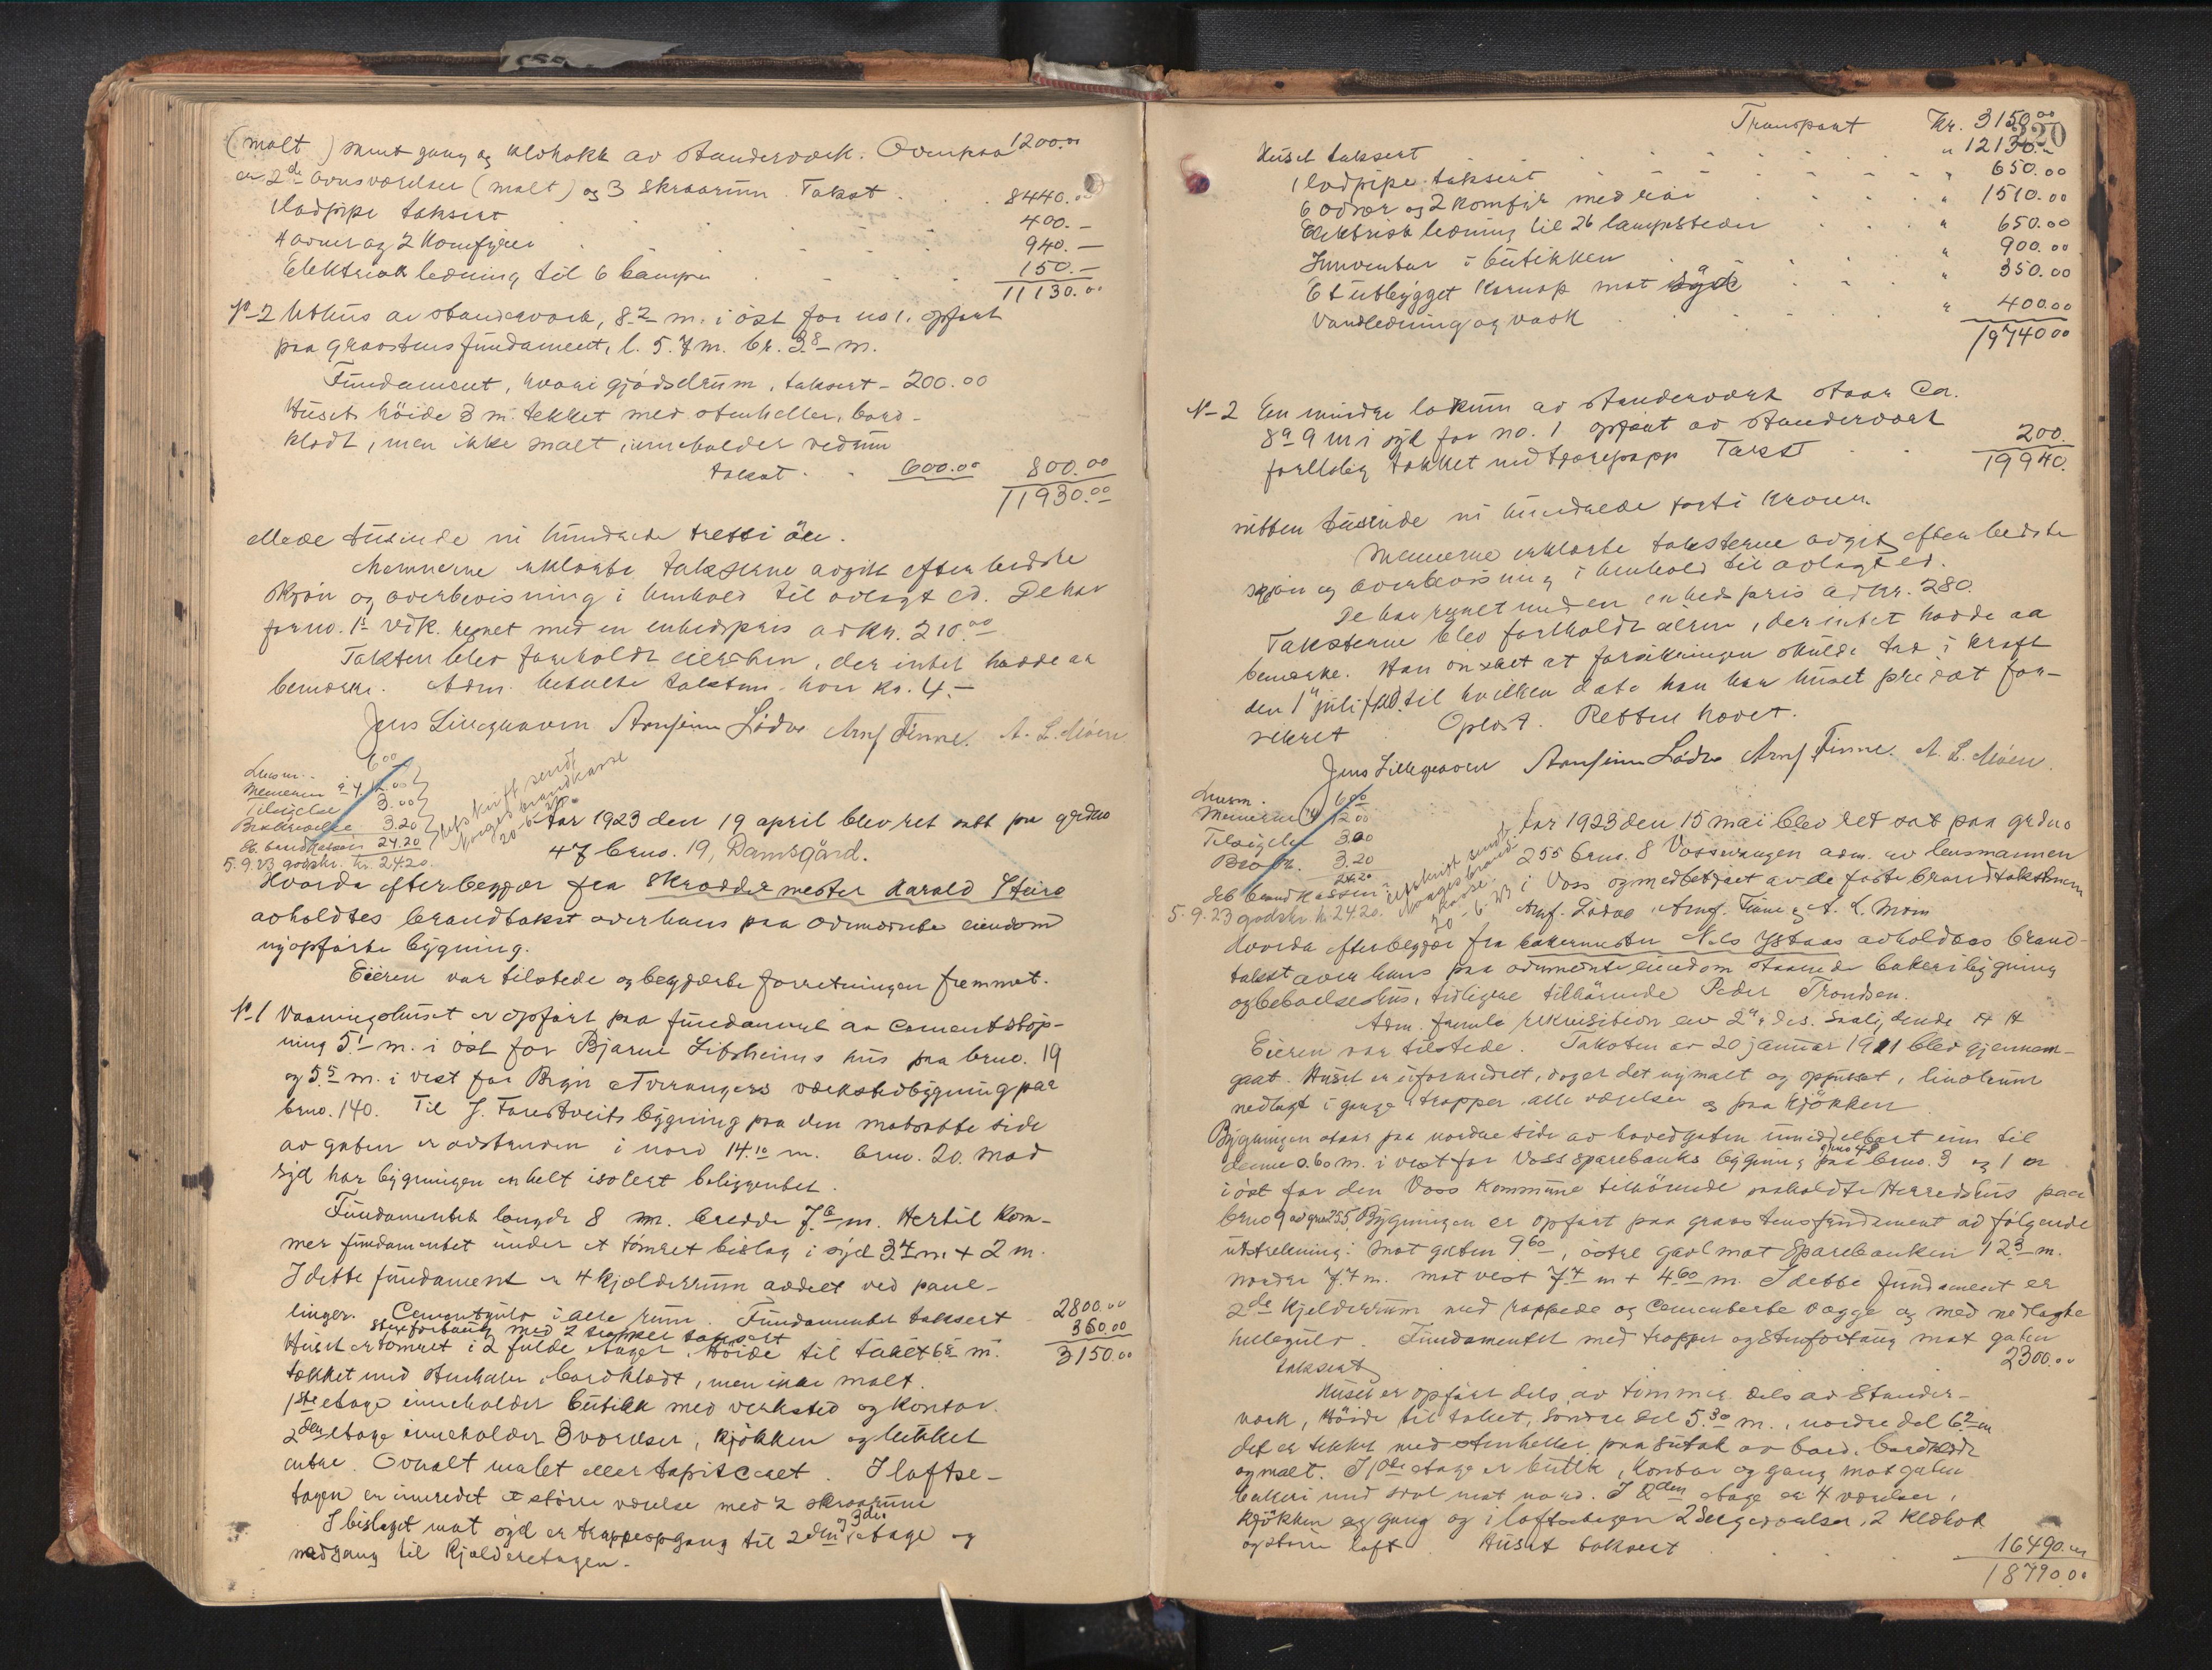 (malt) samt gang og klækott av standerværk. Ovenpaa 1200.00
er 2de arnsværelser (malt) og 3 skraarum. Takst . . . 8440.00
1 ladpipe taksert . . . 400.-
4 ovner og 2 komfyrer . . . 940.—
Elektrisk ledning til 6 lamper . . . 150.—
11130.00
No 2 Uthus av standerværk, 8.2 m. i öst for no 1. opfört
paa graastensfundament, l. 5.7 m. br. 3.8 m.
Fundament, hvori gjödselrum, taksert - 200.00
Husets höide 3 m. tekket med stenheller, bord-
klædt, men ikke malt, inneholder vedrum
takst . . 600.00 800.00
11930.00
elleve tusinde ni hundrede tretti kr.
Mennene erklærte taksterne avgit efter bedste
skjön og overbevisning i henhold til avlagt ed. De har
for no. 1's vedk. regnet med en enhedspris av kr. 210.00
Taksten blev foreholdt eieren, der intet hadde at
bemerke. Adm. betalte takstm. hver kr. 4.-
Jens Lillegraven Arnfinn Lödve Arnf Finne. A. L. Möen
Lensm. 6.00
Mennene à 4. 12.00
Tilsigelse 3.00
Bekræftelse 3.20
Eb. brandkassen 24.20
5.9.23 godskr. kr. 24.20.
Utskrift sendt
Norges brandkasse
20-6-23
Aar 1923 den 19 april blev ret sat paa gardno
47 bruno. 19, Damsgård.
Hvorda efter begjær fra skræddermester Harald Sture
avholdtes brandtakst over hans paa ovennævnte eiendom
nyopförte bygning.
Eieren var tilstede og begjærte forretningen fremmet.
No 1 Vaaningshuset er opfört paa fundament av cementstöp-
ning 5.1 m. i öst for Bjarne Litsheims hus paa bruno. 19
og 5.5 m. i vest for Brgir Tverangers værkstedbygning paa
bruno. 140. Til J. Farestveits bygning paa den motsatte side
av gaten er avstanden i nord 14.10 m. bruno. 20. Mod
syd har bygningen en helt isolert beliggenhet.
Fundamentets længde 8 m. bredde 7.6 m. Hertil kom-
mer fundamentet under et tömret bislag i syd 3.4 m + 2 m.
I dette fundament er 4 kjælderrum avdelt ved pane-
linger. Cementgulv i alle rum. Fundamentet taksert 2800.00
Stenfortaug med 2 trapper taksert 350.00
Huset er tömret i 2 fulde etager. Höide til taket 6.8 m. 3150.00
tækket med stenheller, bordklædt, men ikke malt.
1ste etage inneholder butikk med verksted og kontor.
2den etage inneholder 3 værelser, kjökken og lukket
entre. Overalt malet eller tapitceret. I loftse-
tagen er inredet et större værelse med 2 skraarum
I bislaget mot syd er trappeopgang til 2den og 3die etage og
nedgang til kjælderetagen.
220
Transport Kr. 3150.00
Huset taksert . . . " 12130.-
1 ladpipe taksert . . . " 650.00
6 ovner og 2 komfyr med rör . . . " 1510.00
Elektrisk ledning til 26 lampesteder . . . " 650.00
Innventar i butikken . . . " 900.00
Et utbygget karnap mot syd . . . " 350.00
Vandledning og vask . . . " 400.00
19740.00
No 2 En mindre lokum av standerværk staar ca.
8 à 9 m i syd for no. 1 opfört av standerværk
forelöbig tækket med tjærepapp Takst . . 200.
19940.
nitten tusinde ni hundrede forti kroner.
Mennene erklærte taksterne avgit efter bedste
skjön og overbevisning i henhold til avlagt ed.
De har regnet med en enhedspris av kr. 280.
Taksterne blev foreholdt eieren, der intet hadde at
bemerke. Han önsket at forsikringen skulde træ i kraft
den 1ste juli 1923 til hvilken dato han har huset privat for-
sikret Oplæst. Retten hævet.
Jens Lillegraven Arnfinn Lödve Arnf Finne. A. L. Möen.
Lensm. 6.00
Mennene à 4 12.00
Tilsigelse 3.00
Bræft. 3.20
24.20
Eb brandkassen
5.9.23 godskr. kr. 24.20.
Utskrift sendt
Norges brand-
kasse.
20-6-23
Aar 1923 den 15 mai blev ret sat paa grdno
255 bruno. 8 Vossevangen adm. av lensmannen
i Voss og medbetjent av de faste brandtakstmenn
Arnf. Lödve, Arnf. Finne og A. L. Möen
Hvorda efter begjær fra bakermester Nils Ystaas avholdtes brand-
takst over hans paa ovennævnte eiendom staaende bakeribygning
og beboelseshus, tidligere tilhörende Peder Trondsen.
Adm. femla rekvisition av 2 ds.
Eieren var tilstede. Taksten av 20 januar 1911 blev gjennem-
gaat. Huset er uforandret, dog er det nymalt og oppusset, linoleum
nedlagt i gange trapper alle værelser og paa kjökken
Bygningen staar paa nordre side av hovedgaten umiddelbart inn til
denne 0.60 m. i vest for Voss sparebanks bygning paa gno 48 bruno. 3 og 1 m
i öst for den Voss kommune tilhörende saakaldte Herredshus paa
bruno 9 av gno 255 Bygningen er opfört paa graastensfundament av fölgende
utstrekning: mot gaten 9.60, östre gavl mot Sparebanken 12.3 m.
nordre 7.4 m. mot vest 7.4 m + 4.60 m. I dette fundament er
2de kjelderrum med rappede og cementerte vægge og med nedlagte
hellegulv. Fundamentet med trapper og stenfortaug mot gaten
taksert 2300.00
Huset er opfört dels av tömmer dels av stander-
værk, höide til taket, söndre del 5.30 m., nordre del 6.2 m
det er tekket med stenheller paa sutak av bord, bordklædt
og malt. I 1ste etage er butik, kontor og gang mot gaten
bakeri med sval mot nord. I 2den etage er 4 værelser,
kjökken og gang og i loftsetagen 2 sengeværelser, 2 kleskot
og större loft. Huset taksert . . . 16490.00
18790.00